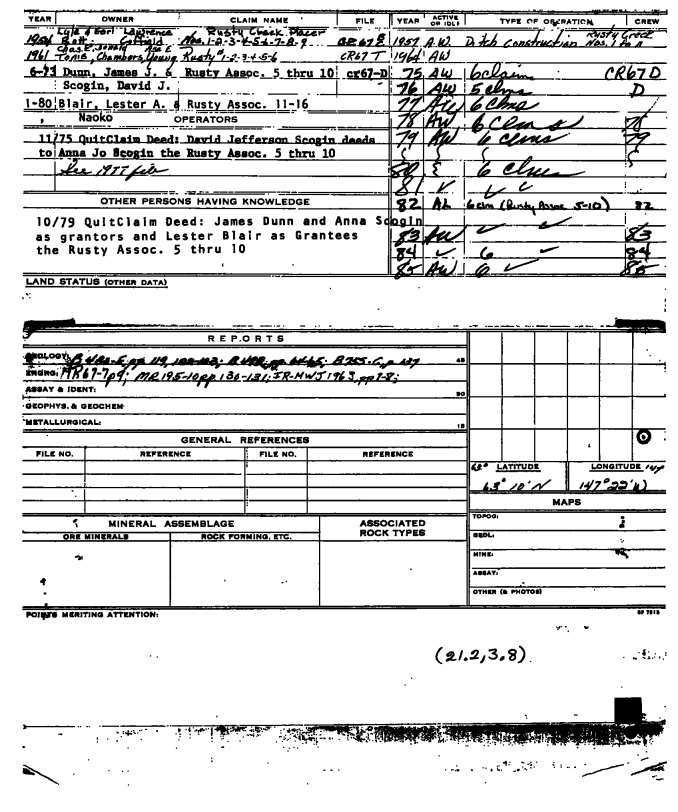 YEAR OWNER CLAIM NAME FILE YEAR ACTIVE OR IDLE TYPE OF OPERATION CREW
Lyle & Earl Lawrence Rusty Creek Placer Rusty Creek
Nos. 1-2-3-4-5-6-7-8-9 1957 A.W. Ditch Construction Nos. 1 to
1961 Toms, Chambers, Young "Rusty" 1-2-3-4-5-6 CR67 T 1964 AW
Dunn, James J. & Rusty Assoc. 5 thru 10 cr67-D 75 AW 6 claims CR67D
Scogin, David J. 76 AW 5 clms D
1-80 Blair, Lester A. & Rusty Assoc. 11-16 77 AW 6 clms
Naoko OPERATORS 78 AW 6 clms 78
11/75 QuitClaim Deed: David Jefferson Scogin deeds 79 AW 6 clms 79
to Anna Jo Scogin the Rusty Assoc. 5 thru 10
See 1977 file 80 6 clms
81 ✓ ✓ ✓
OTHER PERSONS HAVING KNOWLEDGE 82 AL 6 clm (Rusty Assoc 5-10) 82
10/79 QuitClaim Deed: James Dunn and Anna Scogin
as grantors and Lester Blair as Grantees 83 AW ✓ ✓ 83
the Rusty Assoc. 5 thru 10 84 ✓ 6 ✓ 84
85 AW 6 ✓ 85
LAND STATUS (OTHER DATA)
REPORTS
GEOLOGY: 45
ENGRG: MR67-7 p9; MR195-10 pp. 130-131; IR-MWJ 1963, pp 7-8;
ASSAY & IDENT: 30
GEOPHYS. & GEOCHEM
METALLURGICAL: 15
GENERAL REFERENCES
FILE NO. REFERENCE FILE NO. REFERENCE
63° LATITUDE LONGITUDE 147
63° 10' N 147° 22' W
MAPS
MINERAL ASSEMBLAGE ASSOCIATED ROCK TYPES
ORE MINERALS ROCK FORMING, ETC.
TOPOG:
GEOL:
MINE:
ASSAY:
OTHER (& PHOTOS)
POINTS MERITING ATTENTION:
(21.2, 3.8)